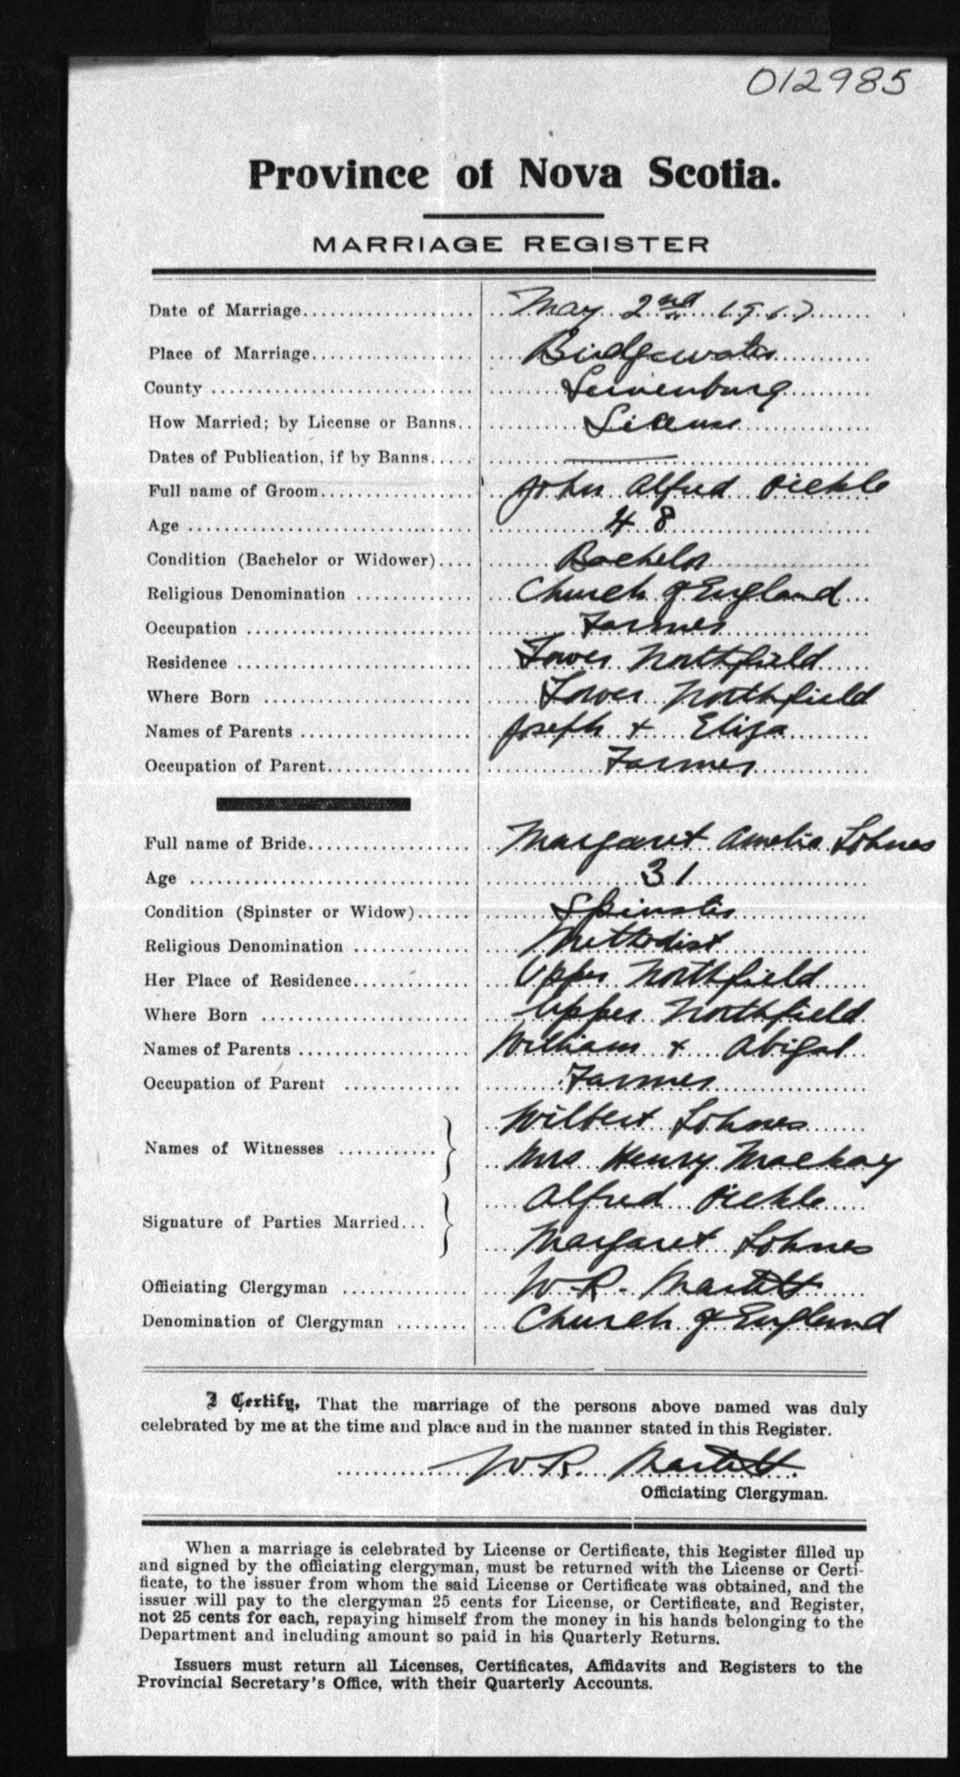 012985
Province of Nova Scotia.
MARRIAGE REGISTER
Date of Marriage.................... May 2nd 1917
Place of Marriage................... Bridgewater
County .............................. Lunenburg
How Married; by License or Banns.. License
Dates of Publication, if by Banns..... ———
Full name of Groom................. John Alfred Pickle
Age ................................. 48
Condition (Bachelor or Widower).... Bachelor
Religious Denomination ............ Church of England
Occupation .......................... Farmer
Residence ........................... Lower Northfield
Where Born ........................ Lower Northfield
Names of Parents ................... Joseph + Eliza
Occupation of Parent................ Farmer
Full name of Bride.................. Margaret Amelia Lohnes
Age ................................. 31
Condition (Spinster or Widow)...... Spinster
Religious Denomination ............ Methodist
Her Place of Residence............. Upper Northfield
Where Born ........................ Upper Northfield
Names of Parents ................... William + Abigal
Occupation of Parent ............. Farmer
Names of Witnesses ........... } Wilbert Lohnes
Mrs Henry Mackay
Signature of Parties Married... } Alfred Pickle
Margaret Lohnes
Officiating Clergyman .............. W R.
Denomination of Clergyman ........ Church of England
I Certify, That the marriage of the persons above named was duly
celebrated by me at the time and place and in the manner stated in this Register.
W R.
Officiating Clergyman.
When a marriage is celebrated by License or Certificate, this Register filled up
and signed by the officiating clergyman, must be returned with the License or Certi-
ficate, to the issuer from whom the said License or Certificate was obtained, and the
issuer will pay to the clergyman 25 cents for License, or Certificate, and Register,
not 25 cents for each, repaying himself from the money in his hands belonging to the
Department and including amount so paid in his Quarterly Returns.
Issuers must return all Licenses, Certificates, Affidavits and Registers to the
Provincial Secretary's Office, with their Quarterly Accounts.